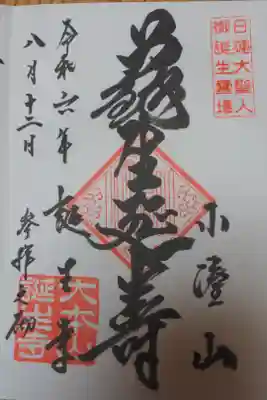 日蓮大聖人
御誕生霊場
小湊山
蘇生延寿
誕生寺
大本山
誕生寺
令和六年
八月十二日
参拝之砌